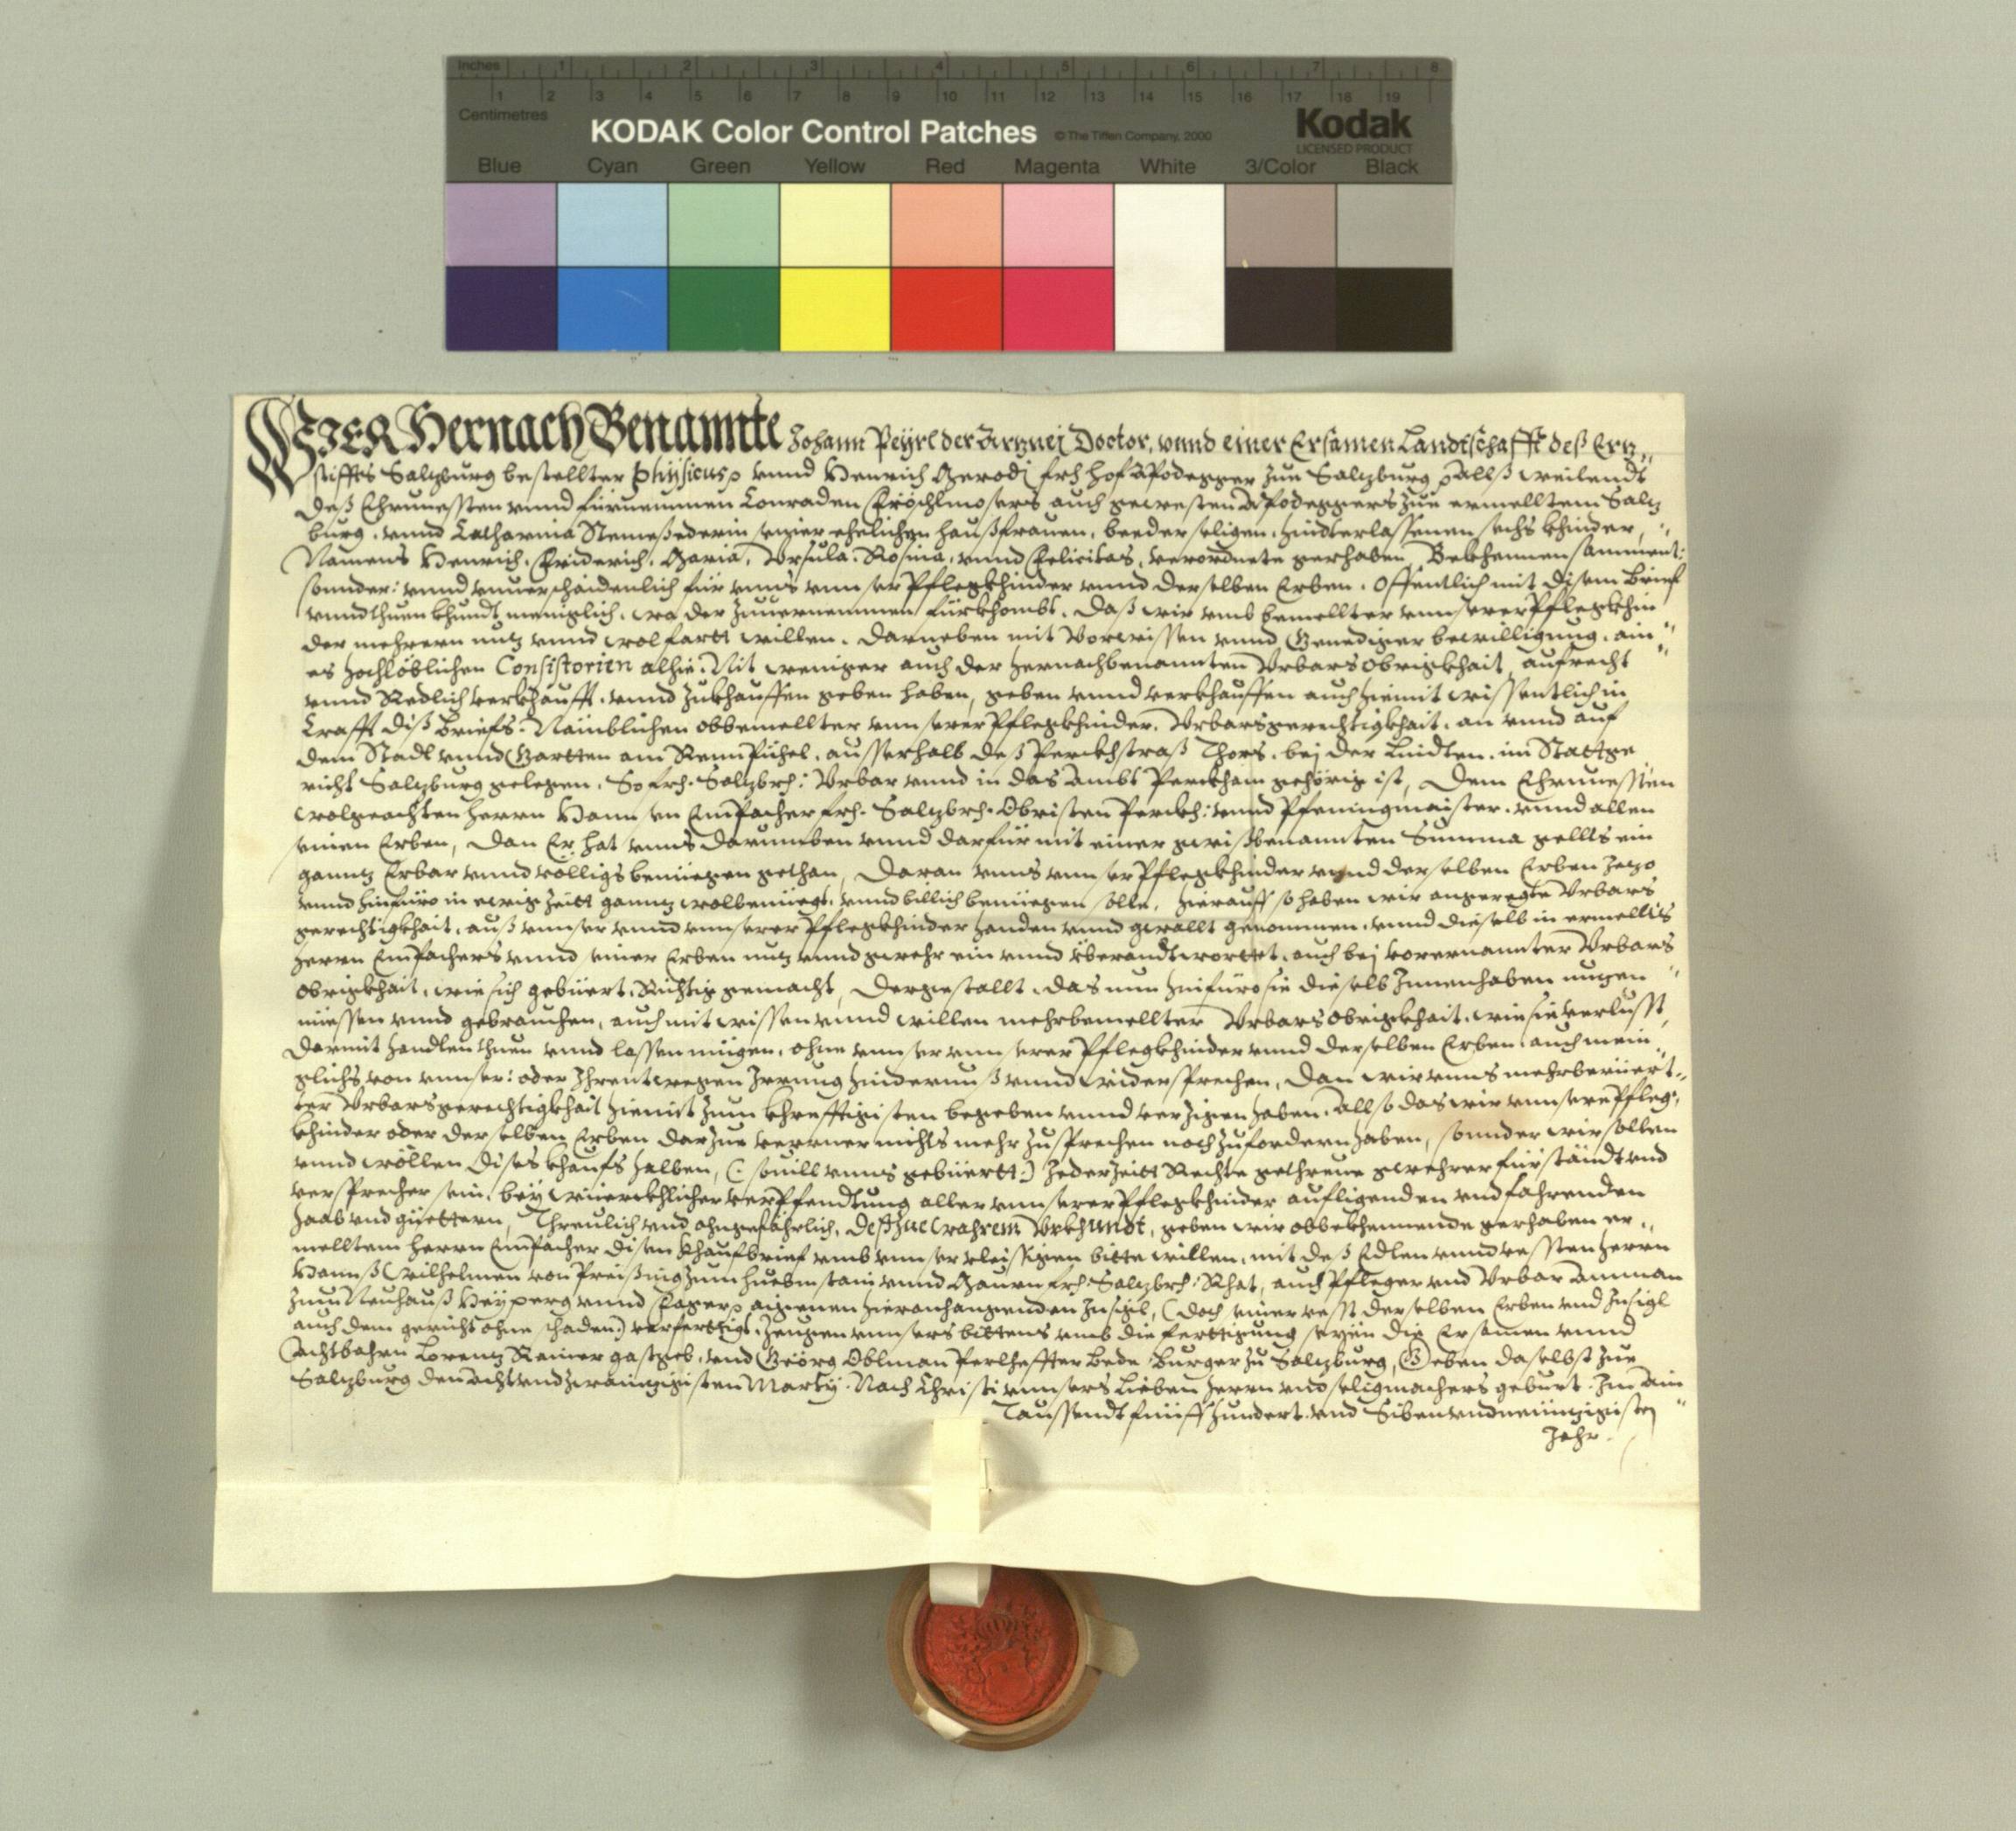 Inches 1 2 3 4 5 6 7 8
1 2 3 4 5 6 7 8 9 10 11 12 13 14 15 16 17 18 19
Centimetres
KODAK Color Control Patches © The Tiffen Company, 2000 Kodak
LICENSED PRODUCT
Blue Cyan Green Yellow Red Magenta White 3/Color Black
WJER Hernach Benannte Johann Peÿrl der Arznej Doctor, vnnd einer Ersamen Landtschafft deß Erz„
stiffts Salzburg bestellter Phÿsicus, vnnd Henrich frh hofapodegger zue Salzburg, allß weilendt
deß Ehrnuessten vnnd fürnemmen Conraden Fröschlmosers auch gewesten Apodeggers zue ermelltem Salz
burg, vnnd Catharina seiner ehelichen haußfrauen, beeder seligen, hindterlassenen sechs khinder,
Namens Henrich, Friderich, Maria, Vrsula, Rosina, vnnd Felicitas, verordnete gerhaben, Bekhennen samment:
sonnder: vnnd vnuerschaidenlich für vnns vnnser Pflegkhinder vnnd derselben Erben, Offentlich mit disem brief
vnnd thuen khundt meniglich, wo der zuuernemmen fürkhombt, daß wir vmb bemellter vnnserer Pflegkhin
der mehrern nutz vnnd wolfart willen, darneben mit Vorwissen vnnd Genediger bewilligung, ain„
es hochlöblichen Consistorien alhie, Nit weniger auch der hernachbenannten Vrbarsobrigkhait, aufrecht
vnnd Redlich verkhaufft, vnnd zukhauffen geben haben, geben vnnd verkhauffen auch hiemit wissentlich in
Crafft diß briefs, Nämblichen obbemellter vnnserer Pflegkhinder, Vrbarsgerechtigkhait, an vnnd auf
dem Stadl vnnd Gartten am Rennpühel, ausserhalb deß Perckhstraß Thors, bej der Lindten, im Stattge
richt Salzburg gelegen, So frh. Salzbrh: Vrbar vnnd in das Ambt Perckhaim gehörig ist, Dem Ehrnuessten
wolgeachten herrn Hannsen frh. Salzbrh. Obristen Perckh: vnnd Pfeningmaister, vnnd allen
seinen Erben, Dan Er hat vnns darumben vnnd darfür mit einer gwißbenannten Summa gellts ein
gannz Erbar vnnd völligs benüegen gethan, Daran vnns vnnser Pflegkhinder vnnd derselben Erben jezo
vnnd hinfüro in ewig Zeitt gannz wolbenüegt, vnnd billich benüegen solle, hierauff so haben wir angeregte Vrbars
gerechtigkhait, auß vnnser vnnd vnnserer Pflegkhinder handen vnnd gwallt genommen, vnnd dieselb in ermellts
herrn vnnd seiner Erben nutz vnnd gwehr ein vnnd überandtworttet, auch bej vorernannter Vrbars
obrigkhait, wie sich gebüert, Richtig gemacht, Dergestallt, das nun hinfüro sie dieselb Innenhaben nutzen„
niessen vnnd gebrauchen, auch mit wissen vnnd willen mehrbemellter Vrbarsobrigkhait, wie sie verlusst,
darmit handlen thuen vnnd lassen mügen, ohne vnnser vnnserer Pflegkhinder vnnd derselben Erben, auch men„
iglichs von vnnser: oder Ihrentwegen Irrung hindernuß vnnd widersprechen, Dan wir vnns mehrberüert„
ter Vrbarsgerechtigkhait hiemit zum khrefftigisten begeben vnnd verzigen haben, Allso das wir vnnsere Pfleg„
khinder oder derselben Erben darzue verrner nichts mehr zusprechen noch zufordern haben, sonnder wir sollen
vnnd wöllen dises khaufs halben, (souill vnns gebüertt) Jederzeitt Rechte gethreue gwehrer fürständt vnd
versprecher sein, beÿ verpfendtung aller vnnserer Pflegkhinder aufligenden vnd fahrenden
haab vnd güettern, Threulich vnd ohngefährlich, Deß zue wahrem Vrkhundt, geben wir obbekhennende gerhaben er„
melltem herrn disen khaufbrief vmb vnnser vleissigen bitte willen, mit deß Edlen vnnd vessten herrn
Hannß Wilhelmen von Preising zum vnnd frh: Salzbrh: Rhat, auch Pfleger vnd Vrbar Amman
zum Neuhauß vnnd aigenen hieranhangenden Insigl, (doch seiner vesst derselben Erben vnd Insigl
auch dem gericht ohne schaden) verfertigt, Zeugen vnnsers bittens vmb die ferttigung seyen die Ersamen vnnd
Achtbahrn Lorenz Rainer gastgeb, vnd Geörg Oblman Perlheffter bede Burger zu Salzburg, Geben daselbst zue
Salzburg den achtvndzwainzigisten Martÿ. Nach Christi vnnsers Lieben herrn vnd seligmachers geburt. Im Ain
Taussendt fünffhundert vnd Sibenvndneünzigisten
Jahr.